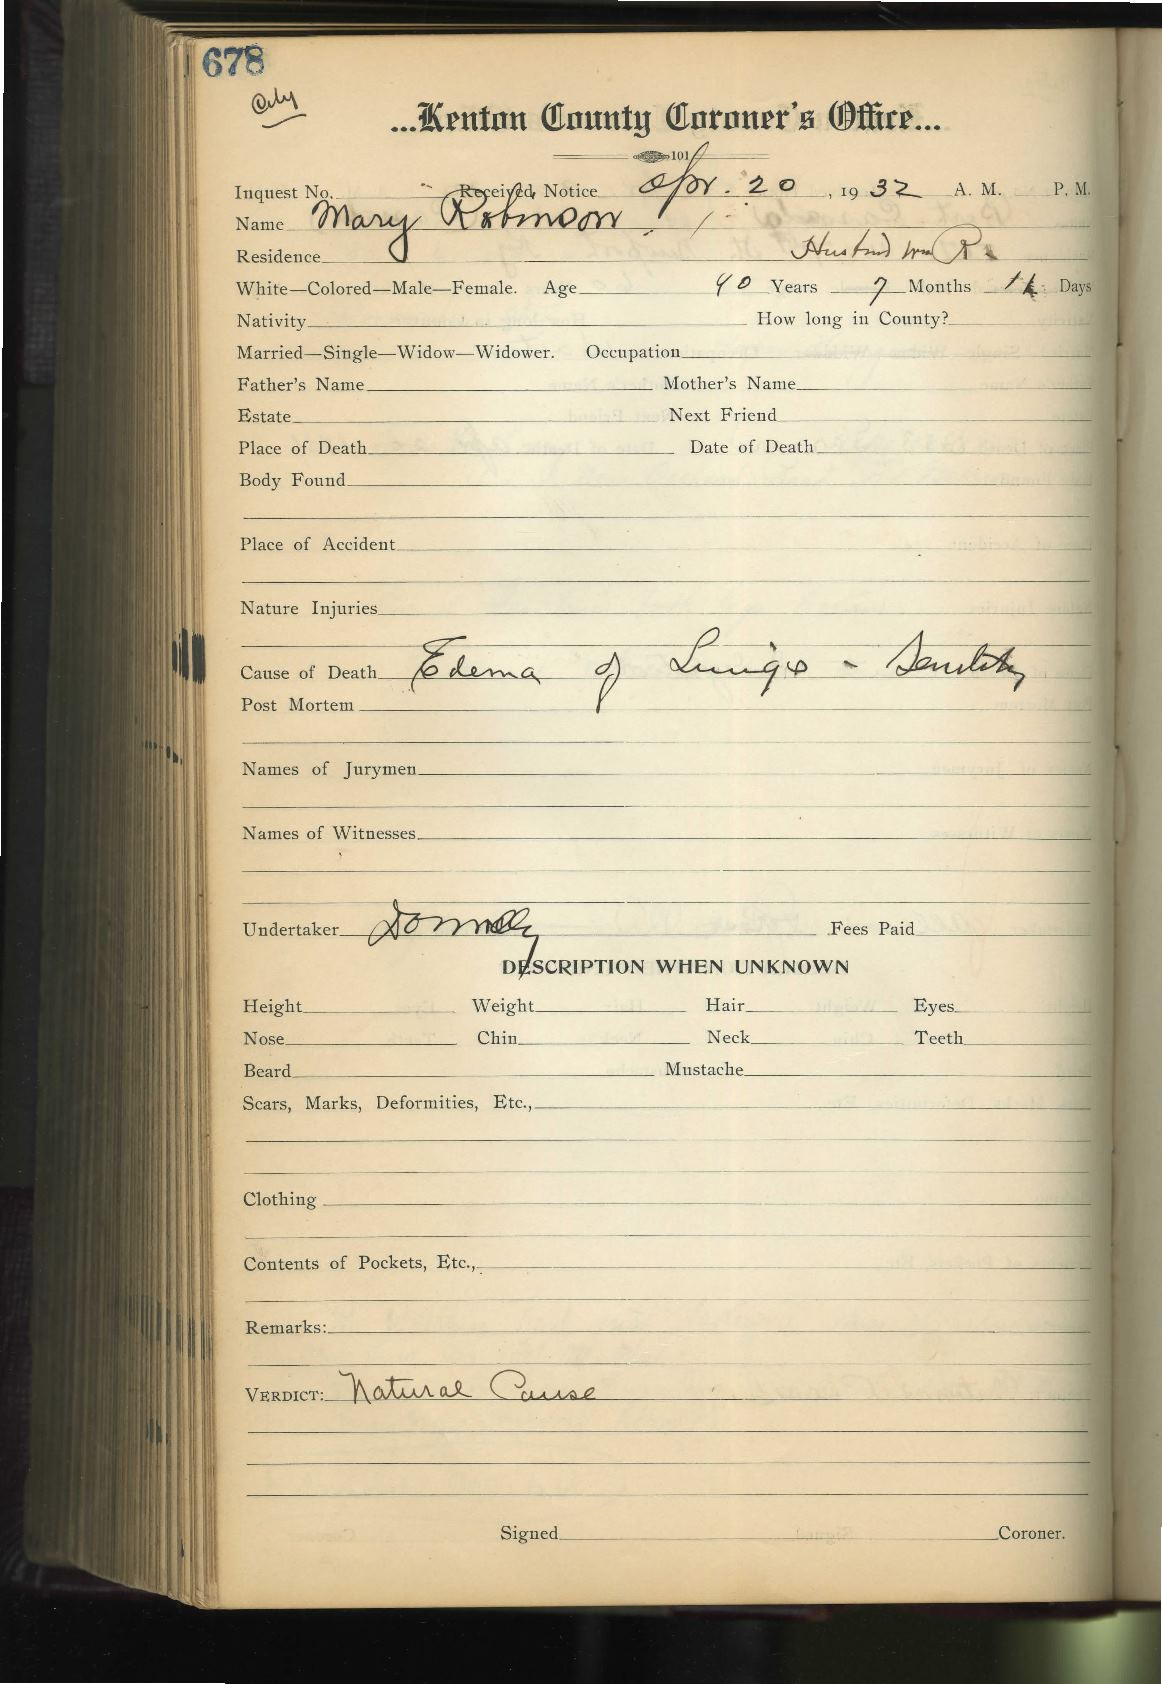 678
City
...Kenton County Coroner's Office...
101
Inquest No. Received Notice Apr. 20, 1932 A. M. P. M.
Name Mary Robinson
Residence Husband Wm R
White—Colored—Male—Female. Age 90 Years 7 Months Days
Nativity How long in County?
Married—Single—Widow—Widower. Occupation
Father's Name Mother's Name
Estate Next Friend
Place of Death Date of Death
Body Found
Place of Accident
Nature Injuries
Cause of Death Edema of Lungs - Senility
Post Mortem
Names of Jurymen
Names of Witnesses
Undertaker Donnelly Fees Paid
DESCRIPTION WHEN UNKNOWN
Height Weight Hair Eyes
Nose Chin Neck Teeth
Beard Mustache
Scars, Marks, Deformities, Etc.,
Clothing
Contents of Pockets, Etc.,
Remarks:
VERDICT: Natural Cause
Signed Coroner.